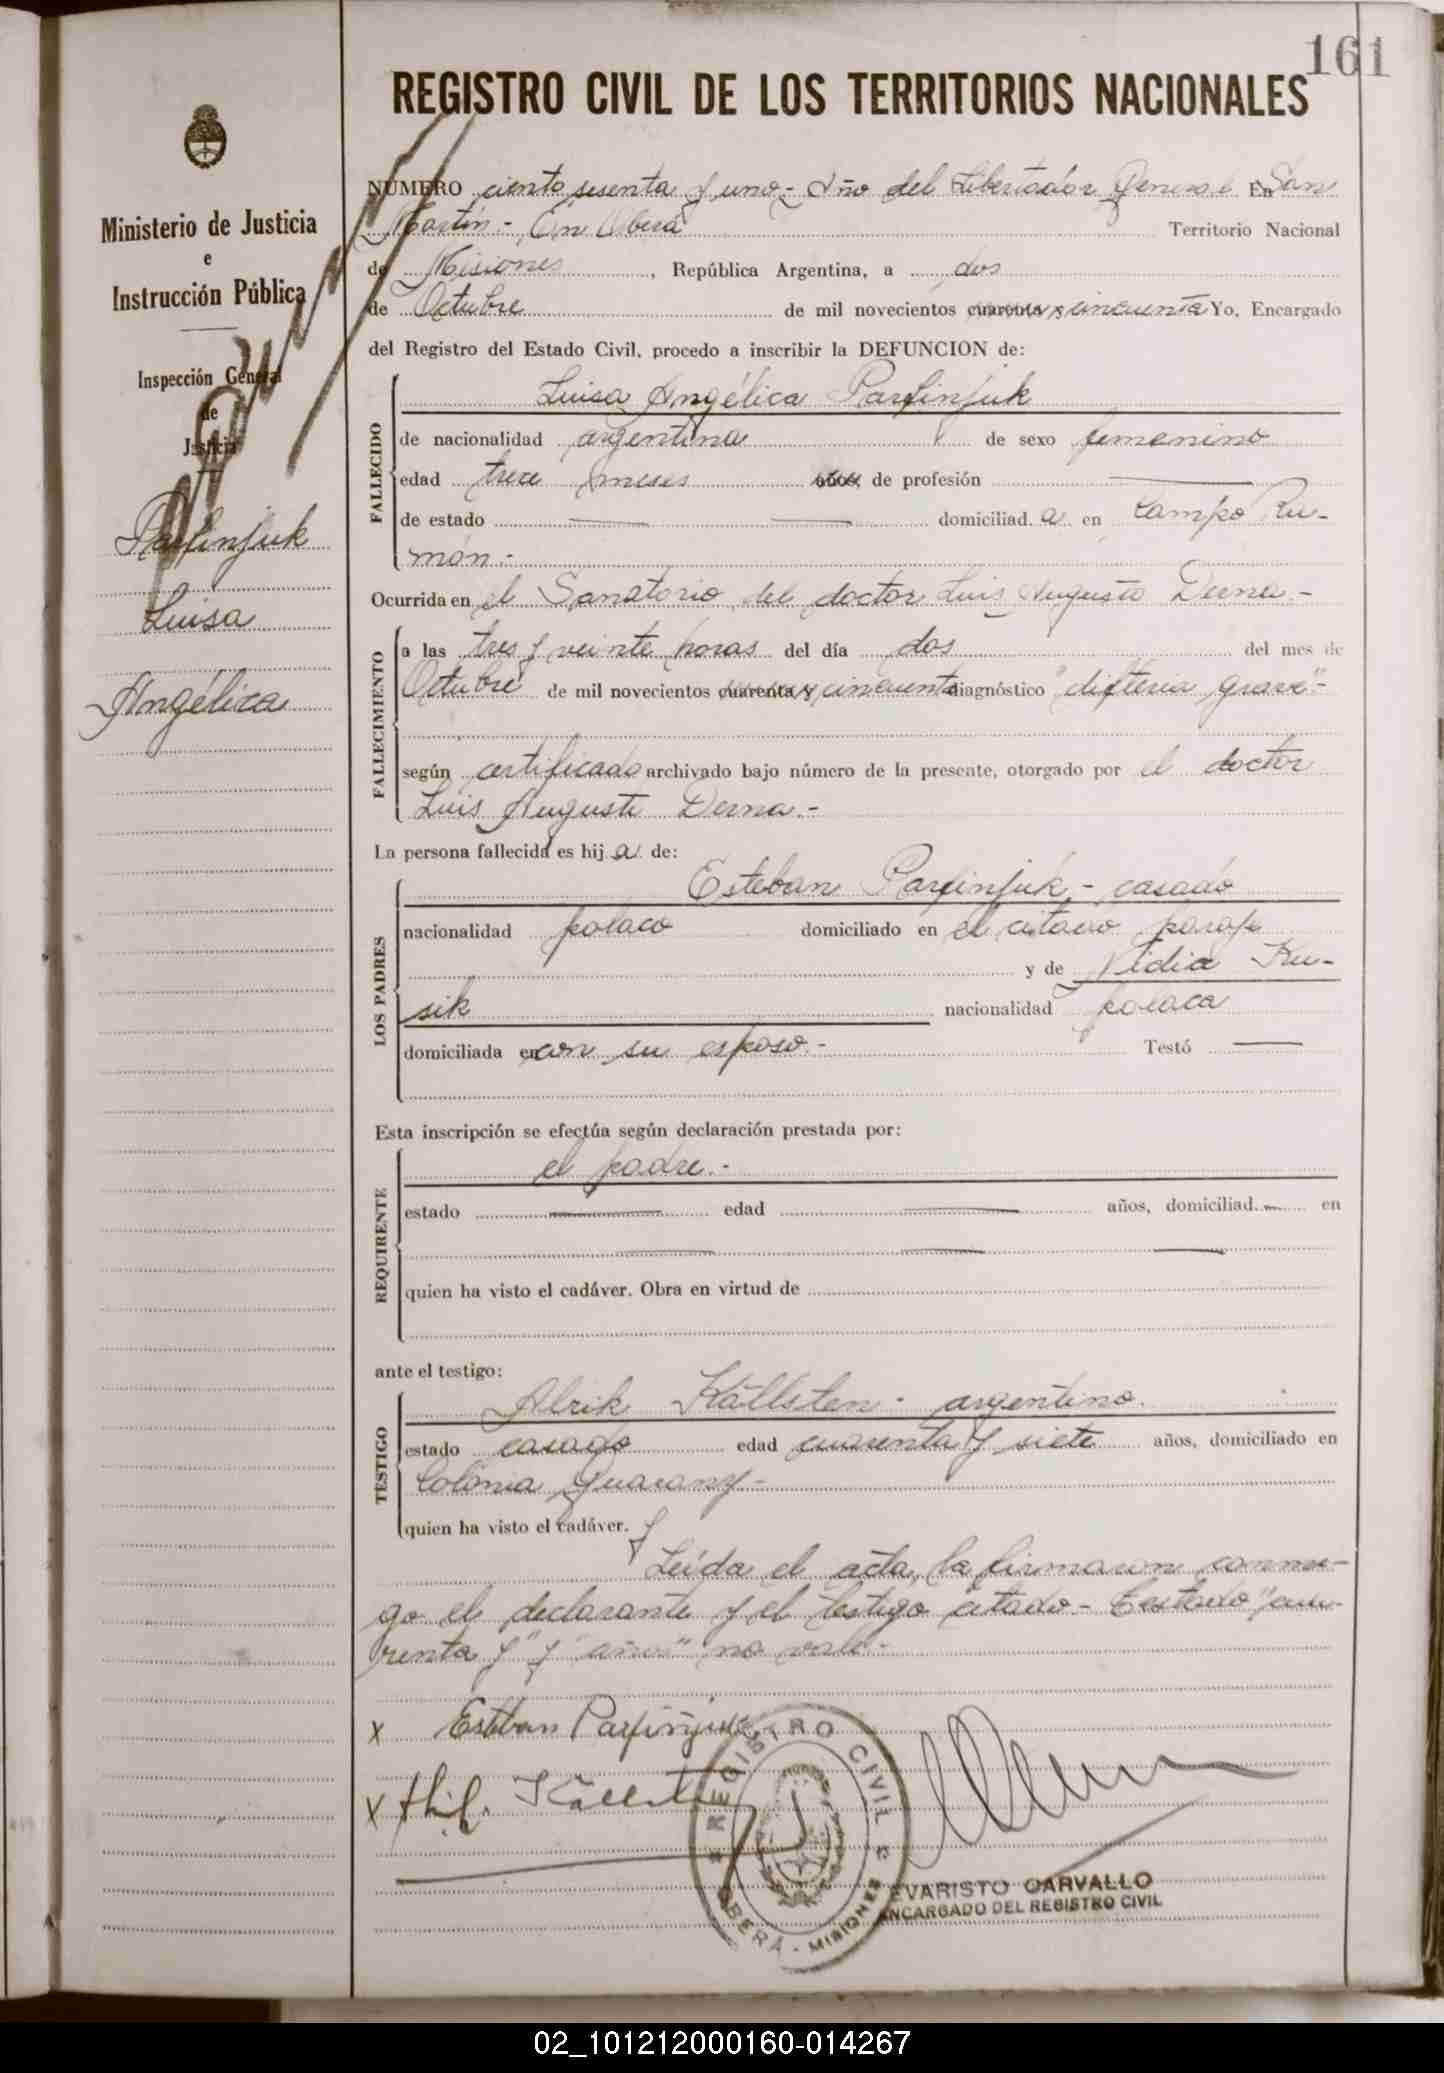 161
REGISTRO CIVIL DE LOS TERRITORIOS NACIONALES
Ministerio de Justicia
e
Instrucción Pública
Inspección General
de
Justicia
Parfinjuk
Luisa
Angélica
NÚMERO ciento sesenta y uno.- Año del Libertador General En San
Martín.- En Oberá Territorio Nacional
de Misiones, República Argentina, a dos
de Octubre de mil novecientos cuarenta y cincuenta Yo, Encargado
del Registro del Estado Civil, procedo a inscribir la DEFUNCION de:
FALLECIDO
Luisa Angélica Parfinjuk
de nacionalidad argentina de sexo femenino
edad trece meses años, de profesión
de estado domiciliad.a en Campo Ru-
món.-
Ocurrida en el Sanatorio del doctor Luis Augusto Derna.-
FALLECIMIENTO
a las tres y veinte horas del día dos del mes de
Octubre de mil novecientos cuarenta y cincuenta diagnóstico "difteria grave"-
según certificado archivado bajo número de la presente, otorgado por el doctor
Luis Augusto Derna.-
La persona fallecida es hij a de:
LOS PADRES
Esteban Parfinjuk - casado
nacionalidad polaco domiciliado en el citado paraje
y de Nidia Ku-
sik nacionalidad polaca
domiciliada en con su esposo.- Testó
Esta inscripción se efectúa según declaración prestada por:
REQUIRENTE
el padre.-
estado edad años, domiciliad. en
quien ha visto el cadáver. Obra en virtud de
ante el testigo:
TESTIGO
Alrik Källsten - argentino.
estado casado edad cuarenta y siete años, domiciliado en
Colonia Guarany-
quien ha visto el cadáver. y
Leída el acta, la firmaron conmi-
go el declarante y el testigo citado - Testado "cua-
renta y" y "años" no vale.-
x Esteban Parfinjuk
x Källsten
REGISTRO CIVIL
OBERÁ - MISIONES
EVARISTO CARVALLO
ENCARGADO DEL REGISTRO CIVIL
02_101212000160-014267